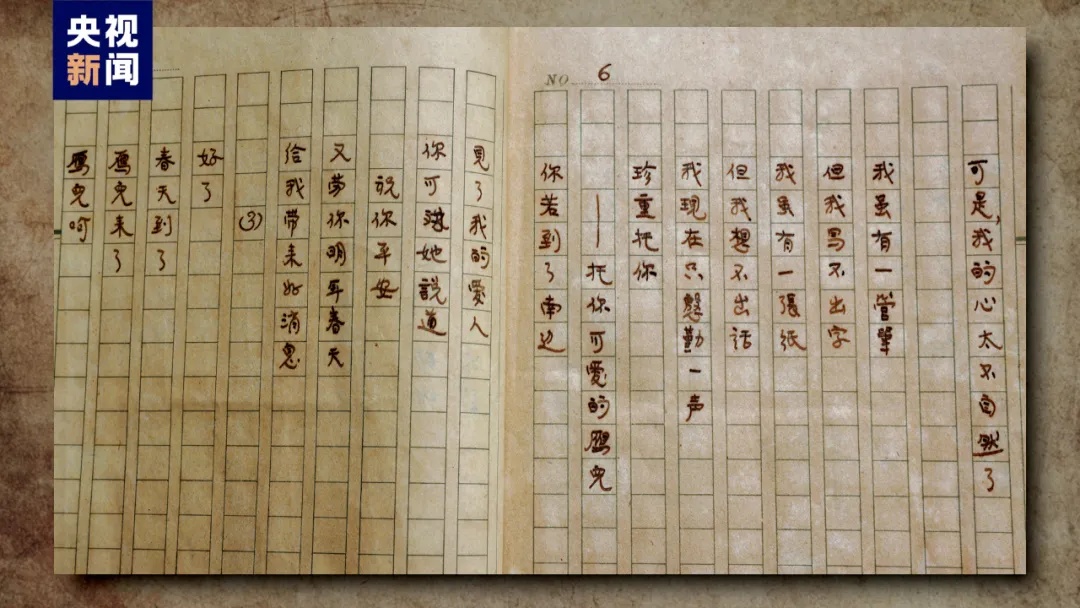 央视
新闻
NO 6
可是,我的心太不自然了
我虽有一管筆
但我写不出字
我虽有一張紙
但我想不出話
我现在只慇勤一声
珍重托你
——托你可愛的鴈兒
你若到了南边
見了我的愛人
你可她說道
説你平安
又劳你明年春天
给我带来好消息
(3)
好了
春天到了
鴈兒来了
鴈兒呵